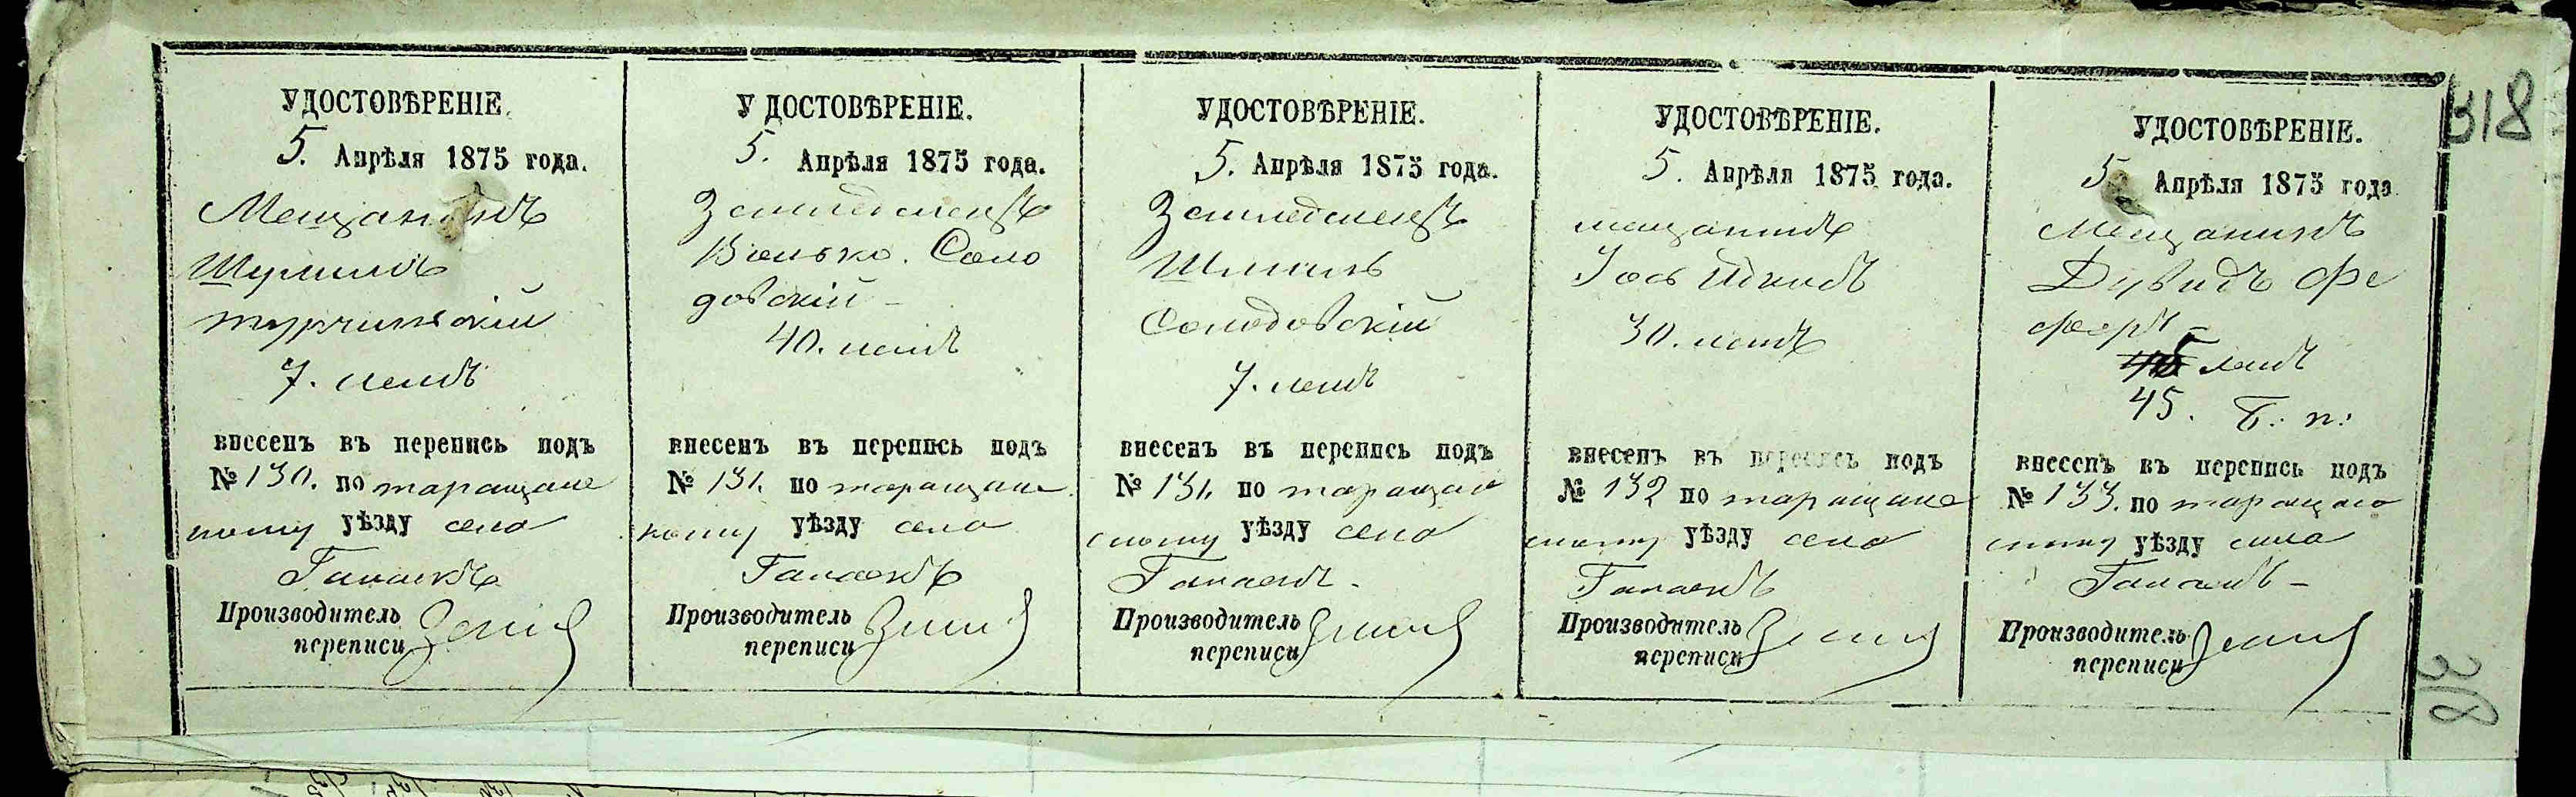 318
УДОСТОВѢРЕНІЕ.
5. Апрѣля 1875 года.
Мещанинъ
Шулимъ
Турчинскій
7. летъ
внесенъ въ перепись подъ
№ 130. по таращанс
кому уѣзду села
Производитель
переписи
УДОСТОВѢРЕНІЕ.
5. Апрѣля 1875 года.
Земледелецъ
Волько. Соло
довскій –
40. летъ
внесенъ въ перепись подъ
№ 131. по таращанс
кому уѣзду села
Производитель
переписи
УДОСТОВѢРЕНІЕ.
5. Апрѣля 1875 года.
Земледелецъ
Шмиль
Солодовскій
7. летъ
внесенъ въ перепись подъ
№ 131. по таращан
скому уѣзду села
Производитель
переписи
УДОСТОВѢРЕНІЕ.
5. Апрѣля 1875 года.
мещанинъ
Іось
30. летъ
внесенъ въ перепись подъ
№ 132 по таращан
скому уѣзду села
Производитель
переписи
УДОСТОВѢРЕНІЕ.
5 Апрѣля 1875 года
Мещанинъ
Дувидъ Фе
феръ –
летъ
45. Б: п:
внесенъ въ перепись подъ
№ 133. по таращан
скому уѣзду села
Производитель
переписи
318